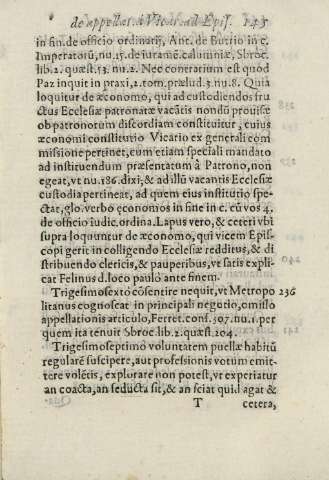 de appellat. à Vicar. ad Epis. 145
in fin. de officio ordinarij, Ant. de Butrio in c.
Imperatorū, nu. 15. de iuram. calumniæ, Sbroc.
lib. 2. quæst. 53. nu. 2. Nec conerarium est quod
Paz inquit in praxi, 2. tom. prælud. 3. nu. 8. Quia
loquitur de œconomo, qui ad custodiendos fru
ctus Ecclesiæ patronatæ vacātis nondū prouisæ
ob patronorum discordiam constituitur, cuius
œconomi constitutio Vicario ex generali com
missione pertinet, cum etiam speciali mandato
ad instituendum præsentatum à Patrono, non
egeat, vt nu. 186. dixi; & ad illū vacantis Ecclesiæ
custodia pertineat, ad quem eius institutio spe-
ctat, glo. verbo œconomos in fine in c. cū vos 4.
de officio iudic. ordina. Lapus vero, & ceteri vbi
supra loquuntur de œconomo, qui vicem Epis-
copi gerit in colligendo Ecclesiæ redditus, & di
stribuendo clericis, & pauperibus, vt satis expli-
cat Felinus d. loco paulò ante finem.
Trigesimosextò cōsentire nequit, vt Metropo 236
litanus cognoscat in principali negotio, omisso
appellationis articulo, Ferret. conf. 307. nu. 1. per
quem ita tenuit Sbroc lib. 2. quæst. 204.
Trigesimoseptimò voluntatem puellæ habitū
regularē suscipere, aut professionis votum emit-
tere volētis, explorare non potest, vt experiatur
an coacta, an seducta sit, & an sciat quid agat &
T cetera,